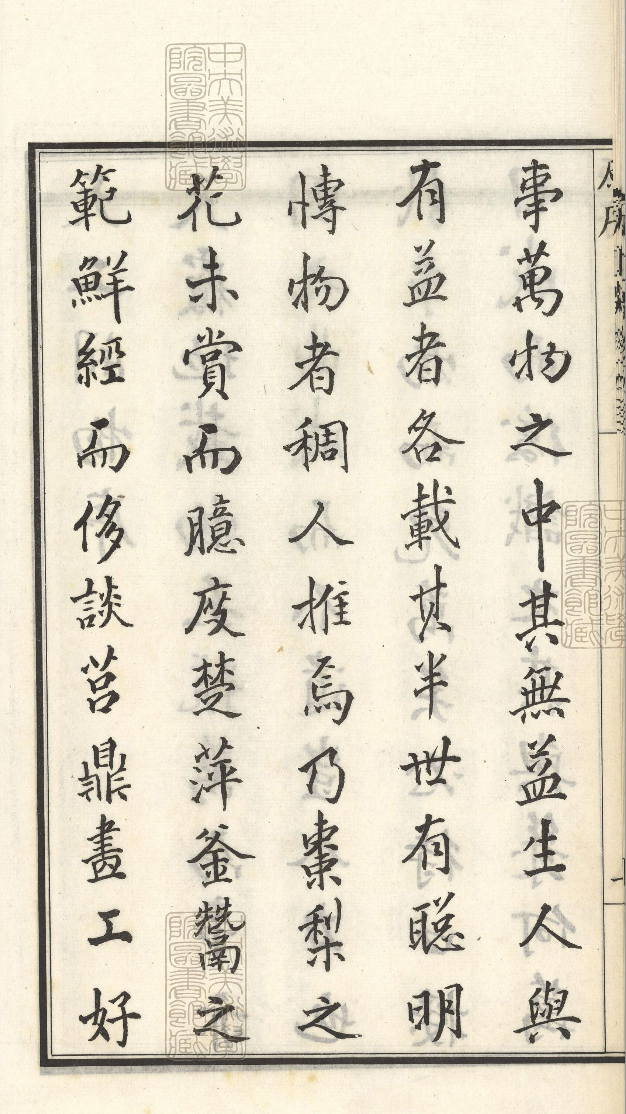 事萬物之中其無益生人與
有益者各載其半世有聰明
博物者稠人推焉乃棗梨之
花未賞而臆度楚萍釜鬵之
範鮮經而侈談莒鼎畫工好